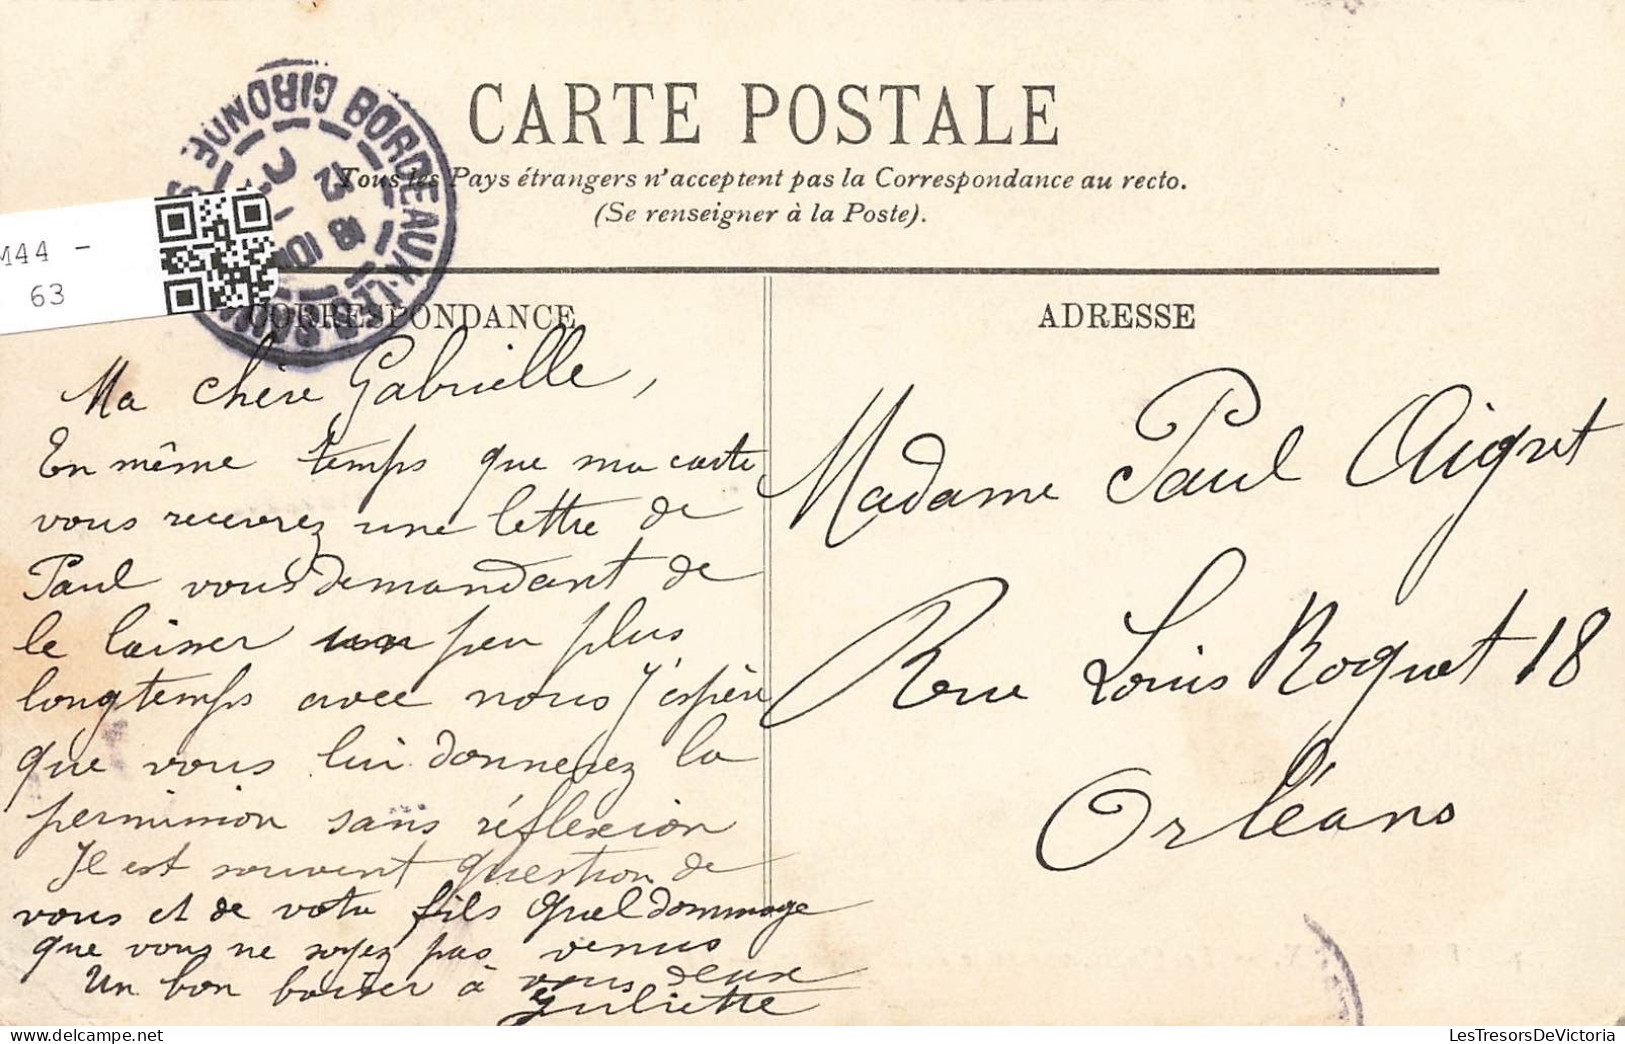 CARTE POSTALE
Tous les Pays étrangers n'acceptent pas la Correspondance au recto.
(Se renseigner à la Poste).
BORDEAUX
GIRONDE
M44 -
63
CORRESPONDANCE
Ma chère Gabrielle,
En même temps que ma carte
vous recevrez une lettre de
Paul vous demandant de
le laisser un peu plus
longtemps avec nous J'espère
que vous lui donnerez la
permission sans réflexion
Il est souvent question de
vous et de votre fils Quel dommage
que vous ne soyez pas venus
Un bon baiser à vous deux
Juliette
ADRESSE
Madame Paul Aigret
Rue Louis Roguet 18
Orléans
LesTresorsDeVictoria